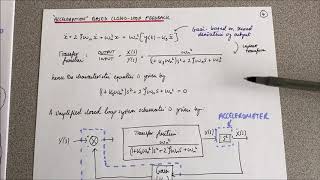 "ACCELERATION" BASED CLOSED-LOOP FEEDBACK
ẍ + 2ζωₙẋ + ωₙ²x = ωₙ²[y(t) - K₂ẍ]
Gain based on second
derivative of output
Transfer function = OUTPUT/INPUT = X(s)/Y(s) = ωₙ²/((1 + K₂ωₙ²)s² + 2ζωₙs + ωₙ²)
Laplace
transform
hence the characteristic equation is given by
(1 + K₂ωₙ²)s² + 2ζωₙs + ωₙ² = 0
A simplified closed loop system schematic is given by:
ACCELEROMETER
Y(s)
Transfer function
ωₙ²/((1 + K₂ωₙ²)s² + 2ζωₙs + ωₙ²)
X(s)
s²
X(s)
Gain